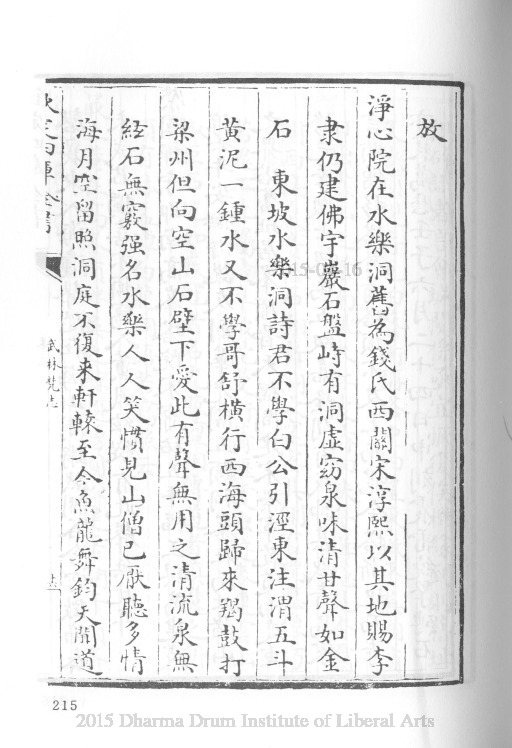 放
淨心院在水樂洞舊為錢氏西關宋淳熙以其地賜李
隶仍建佛宇巖石盤峙有洞虛窈泉味清甘聲如金
石　東坡水樂洞詩君不學白公引涇東注渭五斗
黃泥一鍾水又不學哥舒橫行西海頭歸來羯鼓打
梁州但向空山石壁下愛此有聲無用之清流泉無
絃石無竅强名水樂人人笑慣見山僧已厭聽多情
海月空留照洞庭不復来軒轅至今魚龍舞鈞天聞道
欽定四庫全書
武林梵志
215
2015 Dharma Drum Institute of Liberal Arts